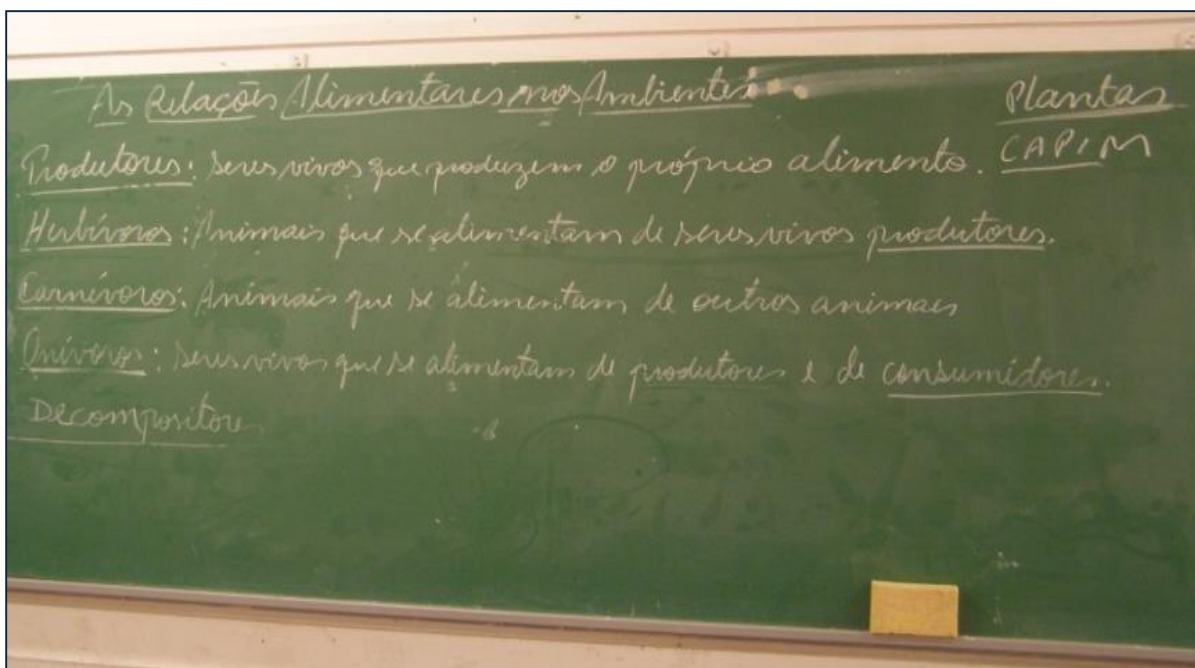 As Relações Alimentares nos Ambientes
Plantas
Produtores: seres vivos que produzem o próprio alimento. CAPIM
Herbívoros: Animais que se alimentam de seres vivos produtores.
Carnívoros: Animais que se alimentam de outros animais
Onívoros: seres vivos que se alimentam de produtores e de consumidores.
Decompositore